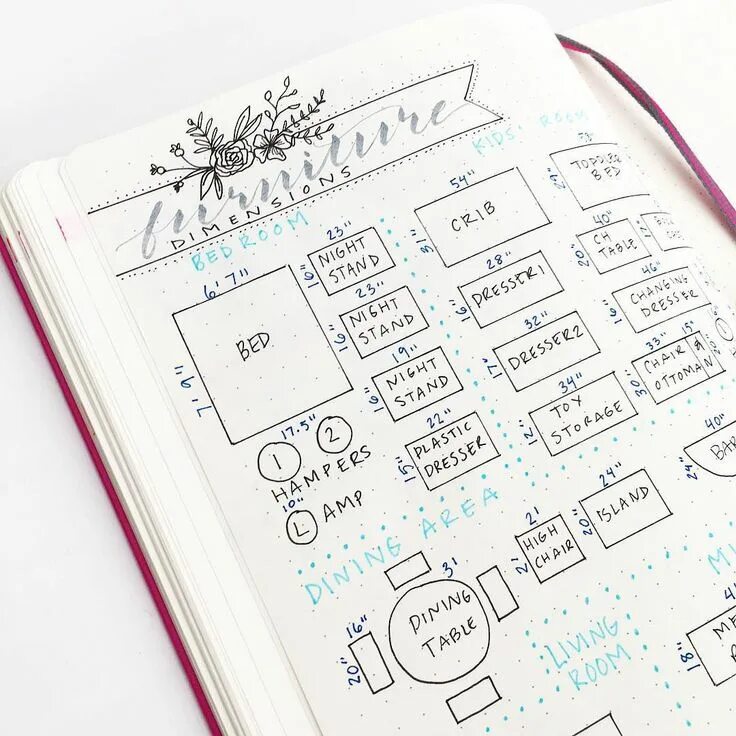 furniture
DIMENSIONS
BEDROOM
6' 7"
7' 9"
BED
23"
16"
NIGHT
STAND
23"
16"
NIGHT
STAND
19"
16"
NIGHT
STAND
22"
15"
PLASTIC
DRESSER
17.5"
1
2
HAMPERS
10"
L
AMP
KIDS' ROOM
54"
31"
CRIB
28"
16"
DRESSER 1
32"
17"
DRESSER 2
34"
12"
TOY
STORAGE
TODDLER
BED
40"
20"
CH
TABLE
46"
16"
CHANGING
DRESSER
33"
15"
30"
CHAIR &
OTTOMAN
1
40"
24"
BAR
DINING AREA
21
21
HIGH
CHAIR
24"
20"
ISLAND
3'
DINING
TABLE
16"
20"
LIVING
ROOM
18"